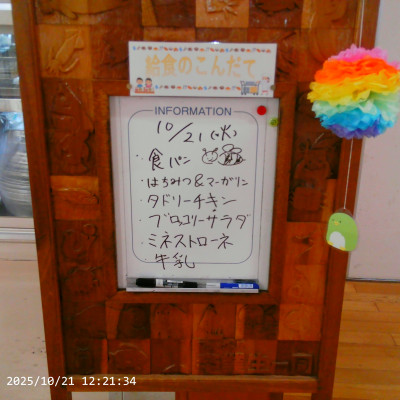 給食のこんだて
INFORMATION
10/21(火)
・食パン
・はちみつ&マーガリン
・タドリーチキン
・ブロッコリーサラダ
・ミネストローネ
・牛乳
2025/10/21 12:21:34